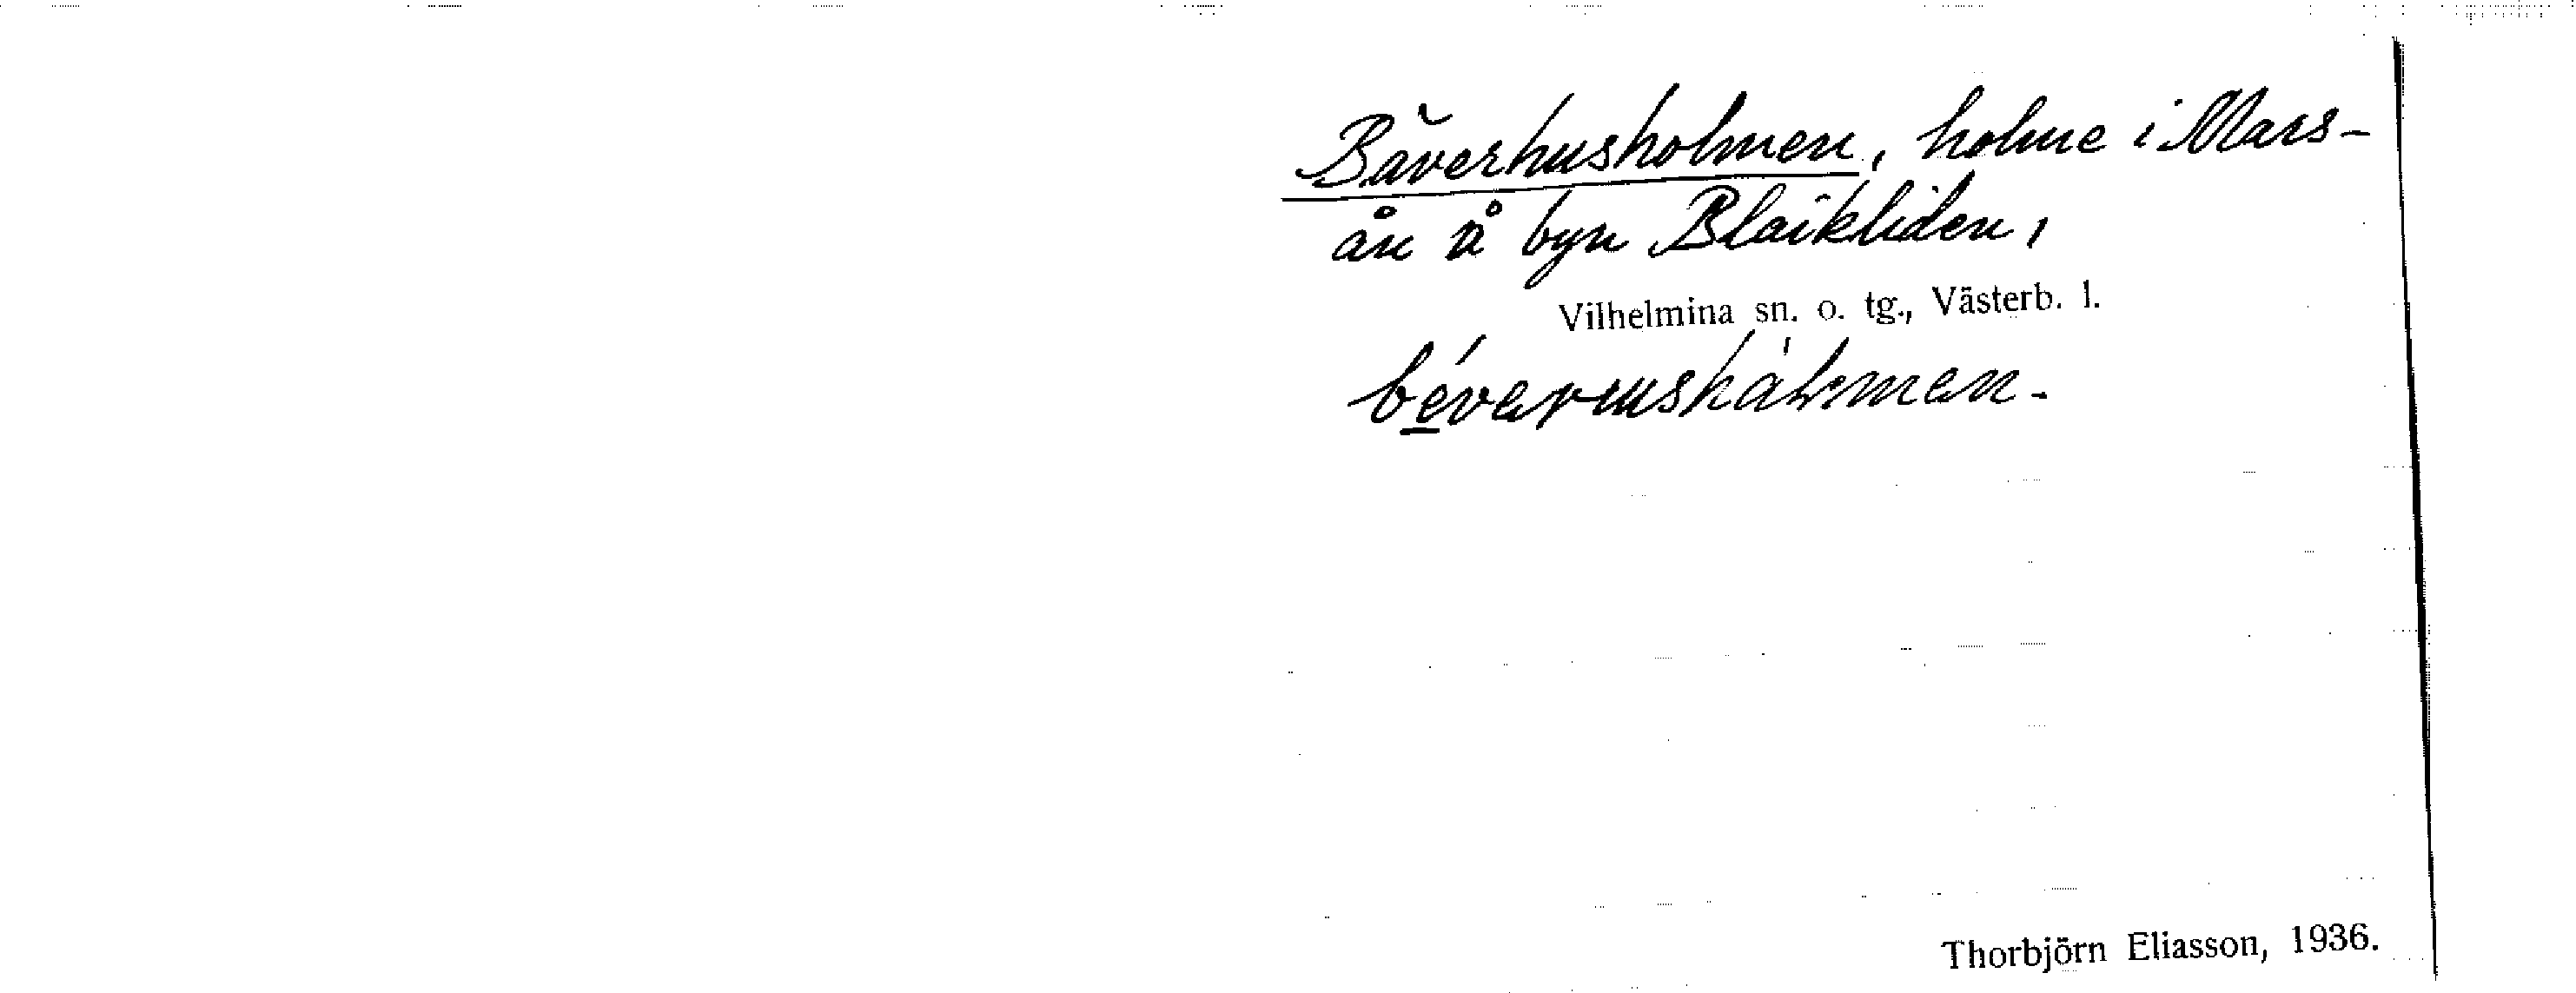 Bäverhusholmen, holme i Mars-
ån å byn Blaikliden,
Vilhelmina sn. o. tg., Västerb. l.
Thorbjörn Eliasson, 1936.